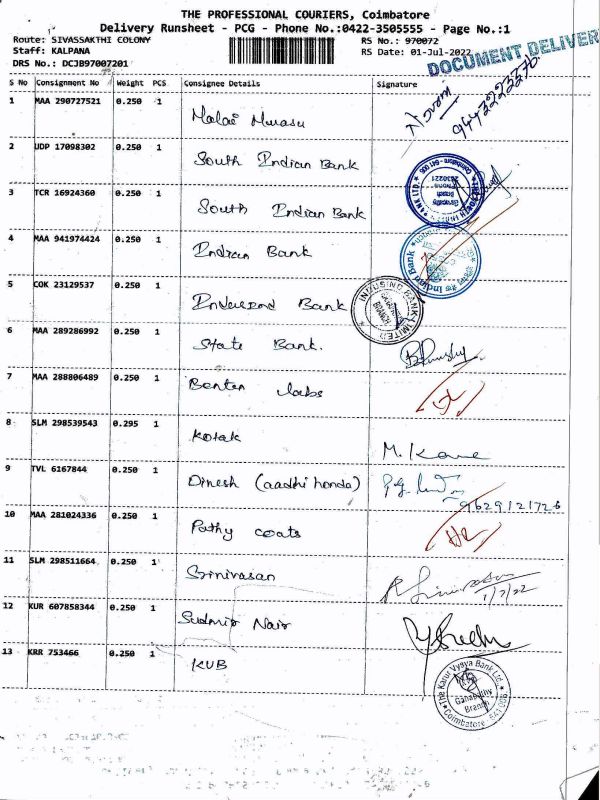 THE PROFESSIONAL COURIERS, Coimbatore
Delivery Runsheet - PCG - Phone No.:0422-3505555 - Page No.:1
Route: SIVASSAKTHI COLONY
RS No.: 970072
Staff: KALPANA
RS Date: 01-Jul-2022
DRS No.: DCJB97007201
DOCUMENT DELIVER
S No Consignment No Weight PCS Consignee Details Signature
1 MAA 290727521 0.250 1
9443223370
2 UDP 17098302 0.250 1 South Indian Bank
3 TCR 16924360 0.250 1 South Indian Bank
4 MAA 941974424 0.250 1 Indian Bank
Indian Bank
5 COK 23129537 0.250 1 Bank
INDUSIND BANK LIMITED
BRANCH
6 MAA 289286992 0.250 1 State Bank.
7 MAA 288806489 0.250 1 Benten labs
8 SLM 298539543 0.295 1 Kotak
9 TVL 6167844 0.250 1 Dinesh (aadhi honda)
9629121726
10 MAA 281024336 0.250 1 Pathy coats
11 SLM 298511664 0.250 1 Srinivasan
R Srinivasan
1/7/22
12 KUR 607858344 0.250 1 Nair
13 KRR 753466 0.250 1 KVB
The Karur Vysya Bank Ltd.
Ganapathy
Branch
Coimbatore 641 006